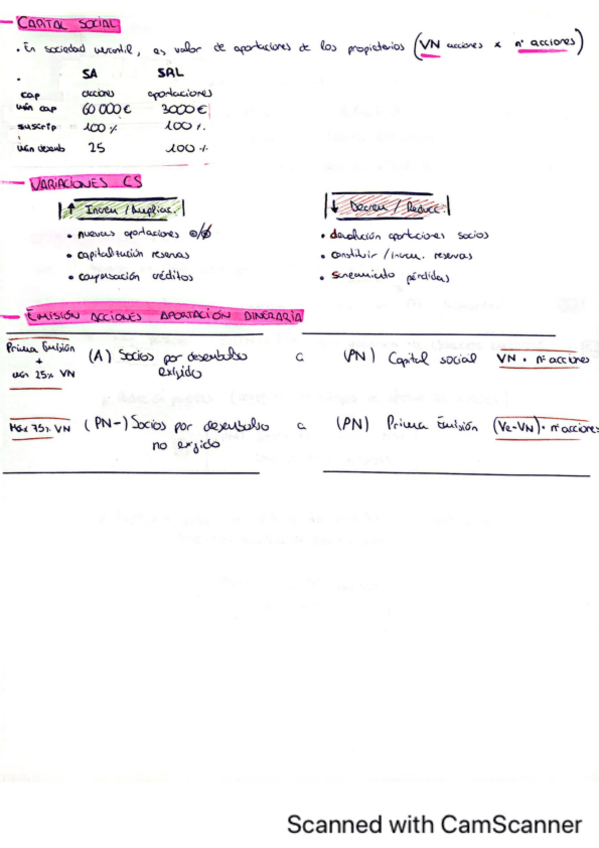 CAPITAL SOCIAL
• En sociedad mercantil, es valor de aportaciones de los propietarios (VN acciones x nº acciones)
SA SRL
cap acciones aportaciones
mín cap 60 000 € 3000 €
suscrip 100 % 100 %
mín desemb 25 100 %
VARIACIONES CS
↑ Increm / Ampliac.
↓ Decrem / Reducc.
• nuevas aportaciones
• capitalización reservas
• compensación créditos
• devolución aportaciones socios
• constituir / increm. reservas
• saneamiento pérdidas
EMISIÓN ACCIONES APORTACIÓN DINERARIA
Prima Emisión + mín 25% VN (A) Socios por desembolso exigido a (PN) Capital social VN · nº acciones
Máx 75% VN (PN-) Socios por desembolso no exigido a (PN) Prima Emisión (VE-VN) · nº acciones
Scanned with CamScanner